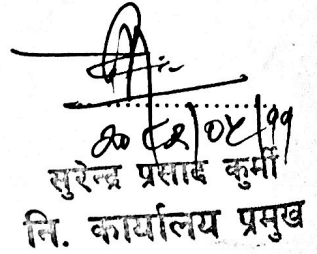 २०८२/०५/११
सुरेन्द्र प्रसाद कुर्मी
नि. कार्यालय प्रमुख